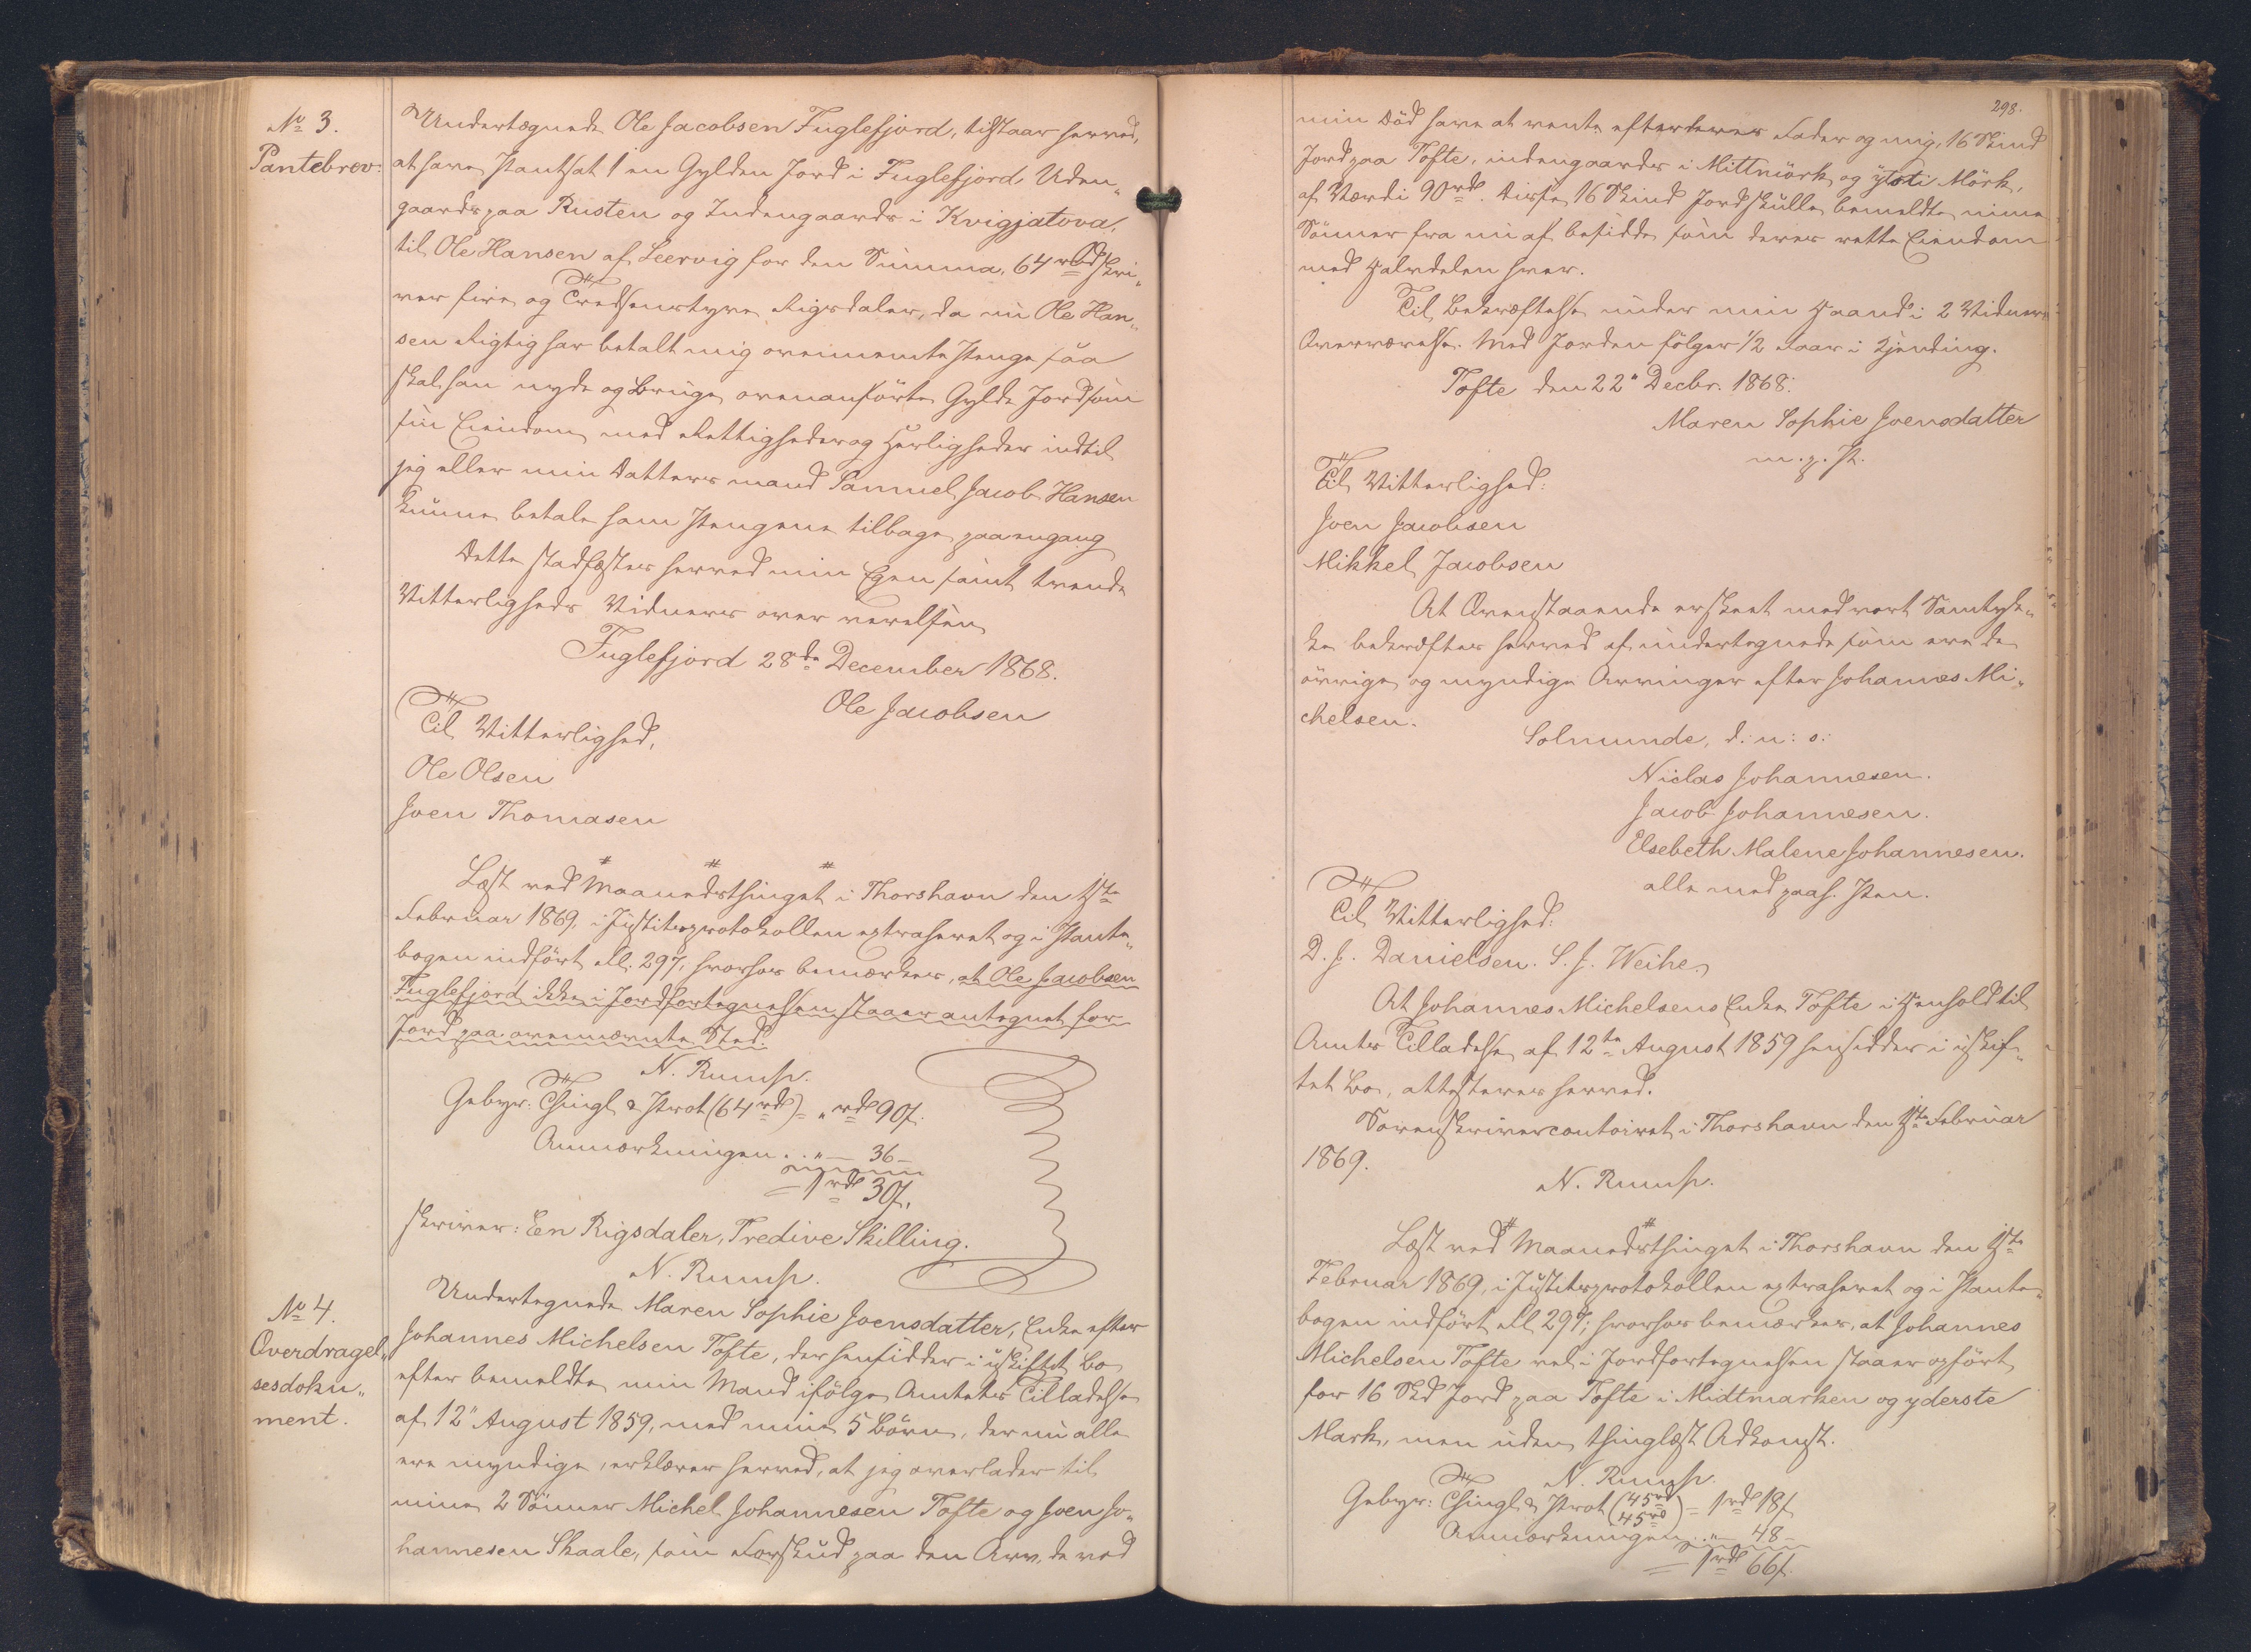 No 3.
Pantebrev:
Undertegnede Ole Jacobsen Fuglefjord, tilstaar herved,
at have Pantsat 1 en Gylden Jord i Fuglefjord, Uden„
gaards paa Rusten og Indengaards i Kvigjatova,
til Ole Hansen af Leervig for den Summa, 64 rd skri„
ver fire og Tredsenstyve Rigsdaler, da nu Ole Han„
sen Rigtig har betalt mig ovennævnte Penge saa
skal han nyde og Bruge ovenanførte Gylde Jord som
sin Eiendom med Rettigheder og Herligheder indtil
jeg eller min Datters mand Samuel Jacob Hansen
kunne betale ham Pengene tilbage paa engang
Dette stadfæster herved min Egen samt tvende
Vitterligheds Vidners over værelsen
Fuglefjord 28de December 1868.
Ole Jacobsen
Til Vitterlighed,
Ole Olsen
Joen Thomasen
Læst ved Maanedsthinget i Thorshavn den 1ste
Februar 1869, i Justitsprotokollen extraheret og i Pante„
bogen indført fol. 297, hvorhos bemærkes, at Ole Jacobsen
Fuglefjord ikke i Jordfortegnelsen staaer antegnet for
Jord paa ovennævnte Sted.
N. Rump.
Gebyr: Thingl & Prot (64 rd) = „ rd 90 f.
Anmærkningen . . „ — 36 —
= 1 rd 30 f.
skriver: Een Rigsdaler, Tredive Skilling.
N. Rump.
No 4.
Overdragel„
sesdoku„
ment.
Undertegnede Maren Sophie Joensdatter, Enke efter
Johannes Michelsen Tofte, der hensidder i uskiftet Bo
efter bemeldte min Mand ifølge Amtets Tilladelse
af 12" August 1859, med mine 5 Børn, der nu alle
ere myndige, erklærer herved, at jeg overlader til
mine 2 Sønner Michel Johannesen Tofte og Joen Jo„
hannesen Skaale, som Forskud paa den Arv, de ved
298.
min Død have at vente efter deres Fader og mig, 16 Skind
Jord paa Tofte, indengaards i Mittmörk og ytsti Mörk,
af Værdi 90 rd. Disse 16 Skind Jord skulle bemeldte mine
Sønner fra nu af besidde som deres rette Eiendom
med Halvdelen hver.
Til Bekræftelse under min Haand i 2 Vidners
Overværelse. Med Jorden følger 1/2 Faar i Kjending.
Tofte den 22" Decbr. 1868:
Maren Sophie Joensdatter
m. p. P.
Til Vitterlighed:
Joen Jacobsen
Mikkel Jacobsen
At Ovenstaaende er skeet med vort Samtyk„
ke bekræftes herved af undertegnede som ere de
øvrige og myndige Arvinger efter Johannes Mi„
chelsen.
Solmunde, d: u: s:
Niclas Johannesen.
Jacob Johannesen.
Elsebeth Malene Johannesen.
alle med paah. Pen.
Til Vitterlighed:
D. J. Danielsen. S. J. Weihe.
At Johannes Michelsens Enke Tofte i Henhold til
Amts Tilladelse af 12te August 1859 hensidder i uskif„
tet Bo, attesteres herved.
Sorenskrivercontoiret i Thorshavn den 1ste Februar
1869.
N. Rump.
Læst ved Maanedsthinget i Thorshavn den 1ste
Februar 1869, i Justitsprotokollen extraheret og i Pante„
bogen indført fol 297; hvorhos bemærkes, at Johannes
Michelsen Tofte vel i Jordfortegnelsen staaer opført
for 16 Skd Jord paa Tofte i Midtmarken og yderste
Mark, men uden thinglæst Adkomst.
N. Rump.
Gebyr: Thingl & Prot (45 rd 45 rd) = 1 rd 18 f
Anmærkningen . . „ — 48 —
= 1 rd 66 f.